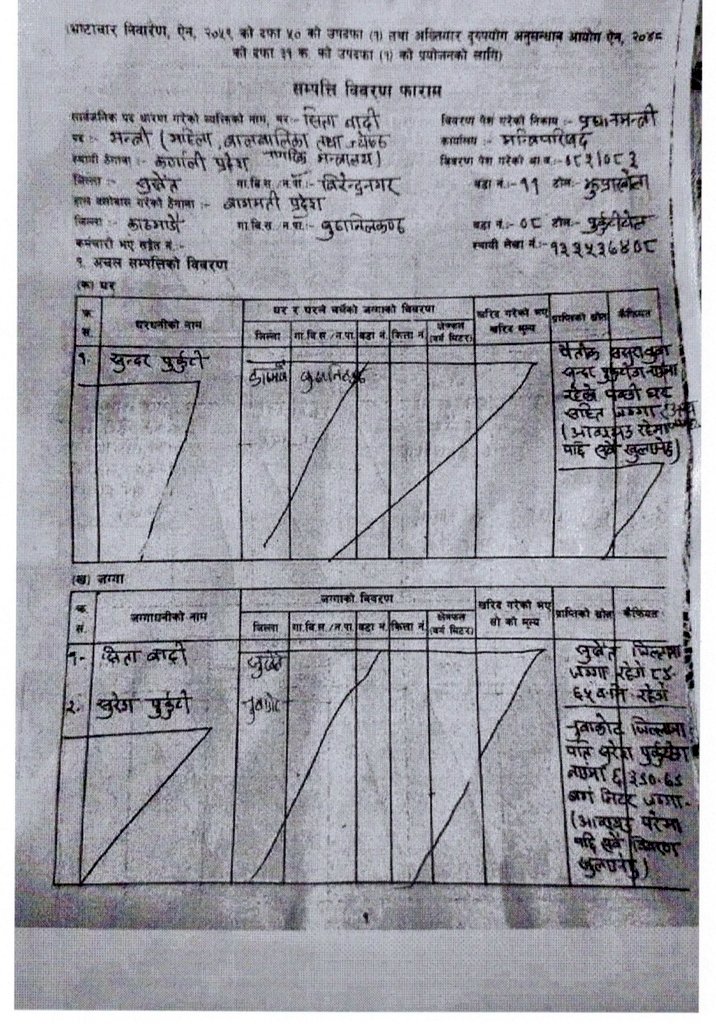 (भ्रष्टाचार निवारण, ऐन, २०५९ को दफा ५० को उपदफा (१) तथा अख्तियार दुरुपयोग अनुसन्धान आयोग ऐन, २०४८
को दफा ३१ क. को उपदफा (१) को प्रयोजनको लागि)
सम्पत्ति विवरण फाराम
सार्वजनिक पद धारण गरेको व्यक्तिको नाम, थर:- सिता वादी
विवरण पेश गरेको निकाय:- प्रधानमन्त्री
पद:- मन्त्री (महिला, बालबालिका तथा जेष्ठ
नागरिक मन्त्रालय)
कार्यालय:- मन्त्रिपरिषद
स्थायी ठेगाना:- कर्णाली प्रदेश
विवरण पेश गरेको आ.व.:- ०८२/०८३
जिल्ला:- सुर्खेत गा.वि.स./न.पा.:- विरेन्द्रनगर वडा नं.:- ११ टोल:-
हाल बसोबास गरेको ठेगाना:- बागमती प्रदेश
जिल्ला:- काठमाडौं गा.वि.स./न.पा.:- बुढानिलकण्ठ वडा नं.:- ०८ टोल:-
कर्मचारी भए संकेत नं.:- स्थायी लेखा नं.:- १३३५३६४०८
१. अचल सम्पत्तिको विवरण
(क) घर
क्र.सं. घरधनीको नाम घर र घरले चर्चेको जग्गाको विवरण खरिद गरेको भए खरिद मूल्य प्राप्तिको स्रोत कैफियत
जिल्ला गा.वि.स./न.पा. वडा नं. कित्ता नं. क्षेत्रफल (वर्ग मिटर)
१. सुन्दर पुर्कुटी काठमाडौं बुढानिलकण्ठ
पैतृक ससुराबुवा
सुन्दर पुर्कुटीको नाममा
रहेको पक्की घर
सहित जग्गा
(आवश्यक परेमा
पछि सबै खुलाउनेछु)
(ख) जग्गा
क्र.सं. जग्गाधनीको नाम जग्गाको विवरण खरिद गरेको भए सो को मूल्य प्राप्तिको स्रोत कैफियत
जिल्ला गा.वि.स./न.पा. वडा नं. कित्ता नं. क्षेत्रफल (वर्ग मिटर)
१- सिता वादी सुर्खेत
सुर्खेत जिल्लामा
जग्गा रहेको
६५ व.मि. रहेको
२. सुरेश पुर्कुटी नुवाकोट
नुवाकोट जिल्लामा
पति सुरेश पुर्कुटीको
नाममा ६३८०.६८
वर्ग मिटर जग्गा-
(आवश्यक परेमा
पछि सबै विवरण
खुलाउनेछु)
१